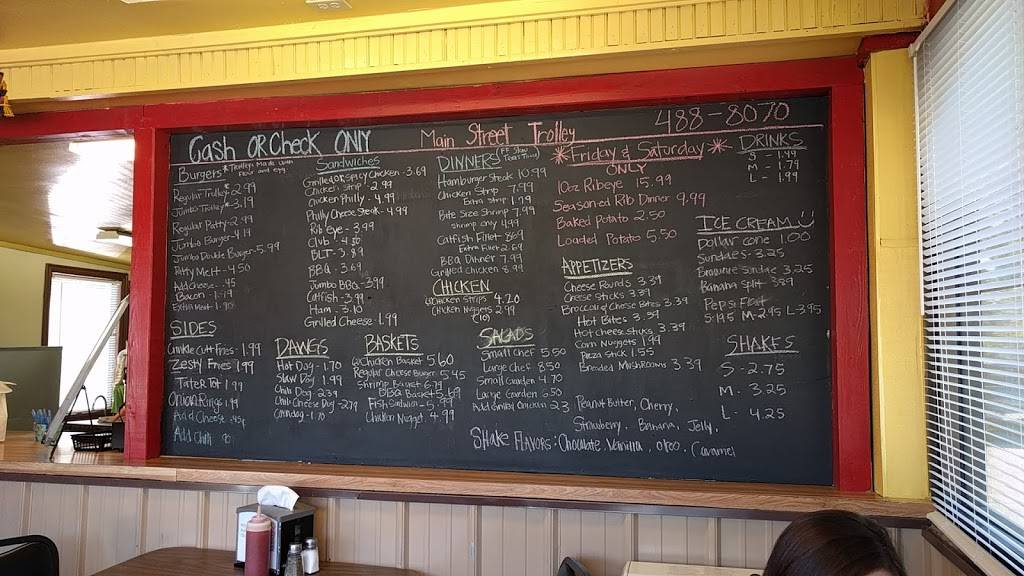 Cash OR Check ONLY
Main Street Trolley
488-8070
Burgers
* Trolleys Made with
Flour and egg
Regular Trolley* 2.99
Jumbo Trolley* 3.19
Regular Patty - 2.99
Jumbo Burger - 4.19
Jumbo Double Burger - 5.99
Patty Melt - 4.50
Add cheese .45
Bacon - 1.
Extra Meat 1.
SIDES
Crinkle Cut Fries 1.99
Zesty Fries 1.99
Tater Tot 1.99
Onion Rings 1.99
Add Cheese .45
Add Chili 90
Sandwiches
Grilled or Spicy Chicken - 3.69
Chicken Strip - 2.99
Chicken Philly - 4.99
Philly Cheese Steak - 4.99
Rib eye - 3.99
Club - 4.50
BLT - 3.89
BBQ - 3.69
Jumbo BBQ - 3.99
Catfish - 3.99
Ham - 3.10
Grilled Cheese - 1.99
DAWGS
Hot Dog - 1.70
Slaw Dog 1.99
Chili Dog - 2.39
Chili Cheese Dog - 2.79
Corndog - 1.70
BASKETS
Chicken Basket 5.60
Regular Cheese Burger 5.45
Shrimp Basket 6.79
BBQ Basket
Fish Sandwich 5.99
Chicken Nugget 4.99
DINNERS
Hamburger Steak 10.99
Chicken Strip 7.99
Extra Strip 1.79
Bite Size Shrimp 7.99
Shrimp only 4.99
Catfish Fillet
Extra Fillet 2.69
BBQ Dinner 7.99
Grilled Chicken 8.99
CHICKEN
Chicken Strips 4.20
Chicken Nuggets 2.99
SALADS
Small Chef 5.50
Large Chef 8.50
Small Garden 4.70
Large Garden 6.50
Add Grilled Chicken
*Friday & Saturday*
ONLY
10oz Ribeye 15.99
Seasoned Rib Dinner 9.99
Baked Potato 2.50
Loaded Potato 5.50
APPETIZERS
Cheese Rounds 3.39
Cheese Sticks 3.39
Broccoli & Cheese Bites 3.39
Hot Bites 3.39
Hot cheese sticks 3.39
Corn Nuggets 1.99
Pizza Stick 1.55
Breaded Mushrooms 3.39
DRINKS
S - 1.49
M - 1.79
L - 1.99
ICE CREAM
Dollar cone 1.00
Sundaes - 3.25
Brownie Sundae 3.25
Banana Split 3.89
Pepsi Float
S-1.95 M-2.95 L-3.95
SHAKES
S - 2.75
M - 3.25
L - 4.25
Peanut Butter, Cherry,
Strawberry, Banana, Jelly,
Shake Flavors: Chocolate, Vanilla, Oreo, Caramel